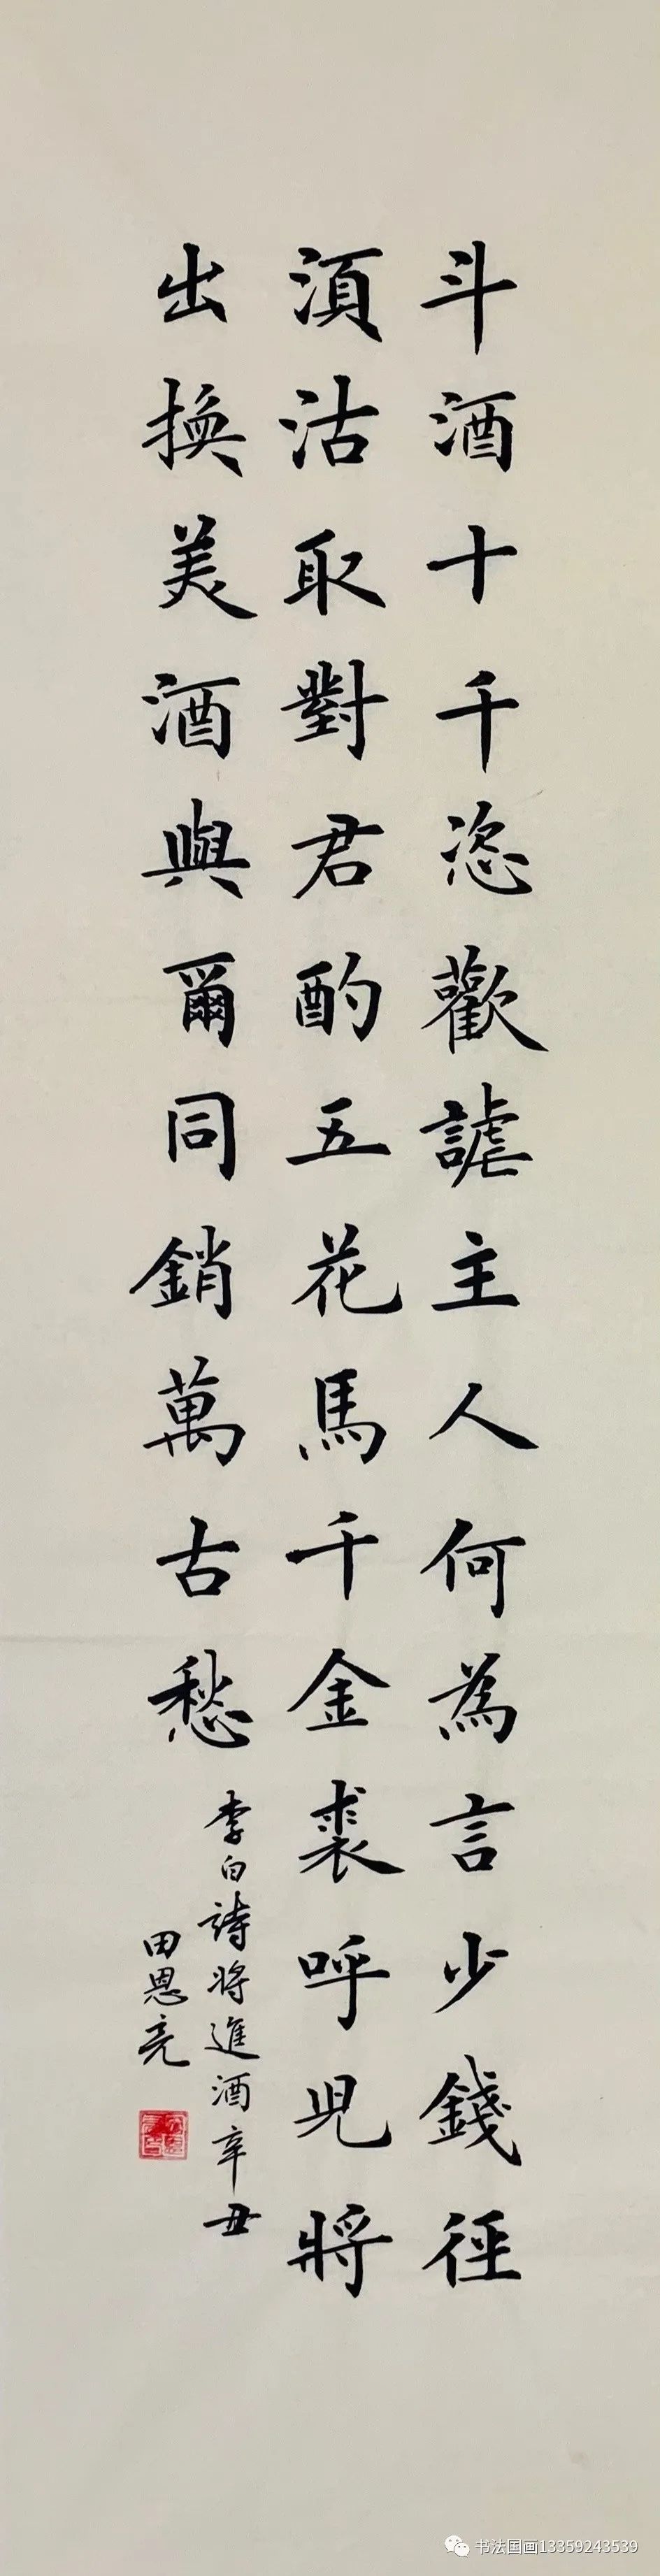 斗酒十千恣歡謔主人何為言少錢徑
須沽取對君酌五花馬千金裘呼兒將
出換美酒與爾同銷萬古愁
李白詩將進酒辛丑
田恩亮
书法国画13359243539